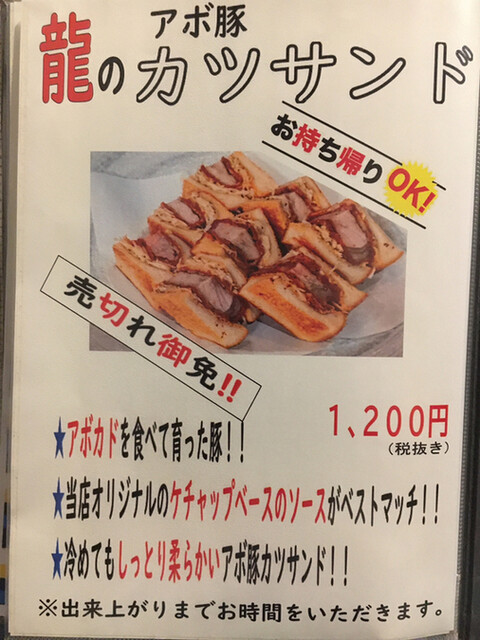 アボ豚
龍のカツサンド
お持ち帰りOK!
売切れ御免!!
1,200円
(税抜き)
★アボカドを食べて育った豚!!
★当店オリジナルのケチャップベースのソースがベストマッチ!!
★冷めてもしっとり柔らかいアボ豚カツサンド!!
※出来上がりまでお時間をいただきます。